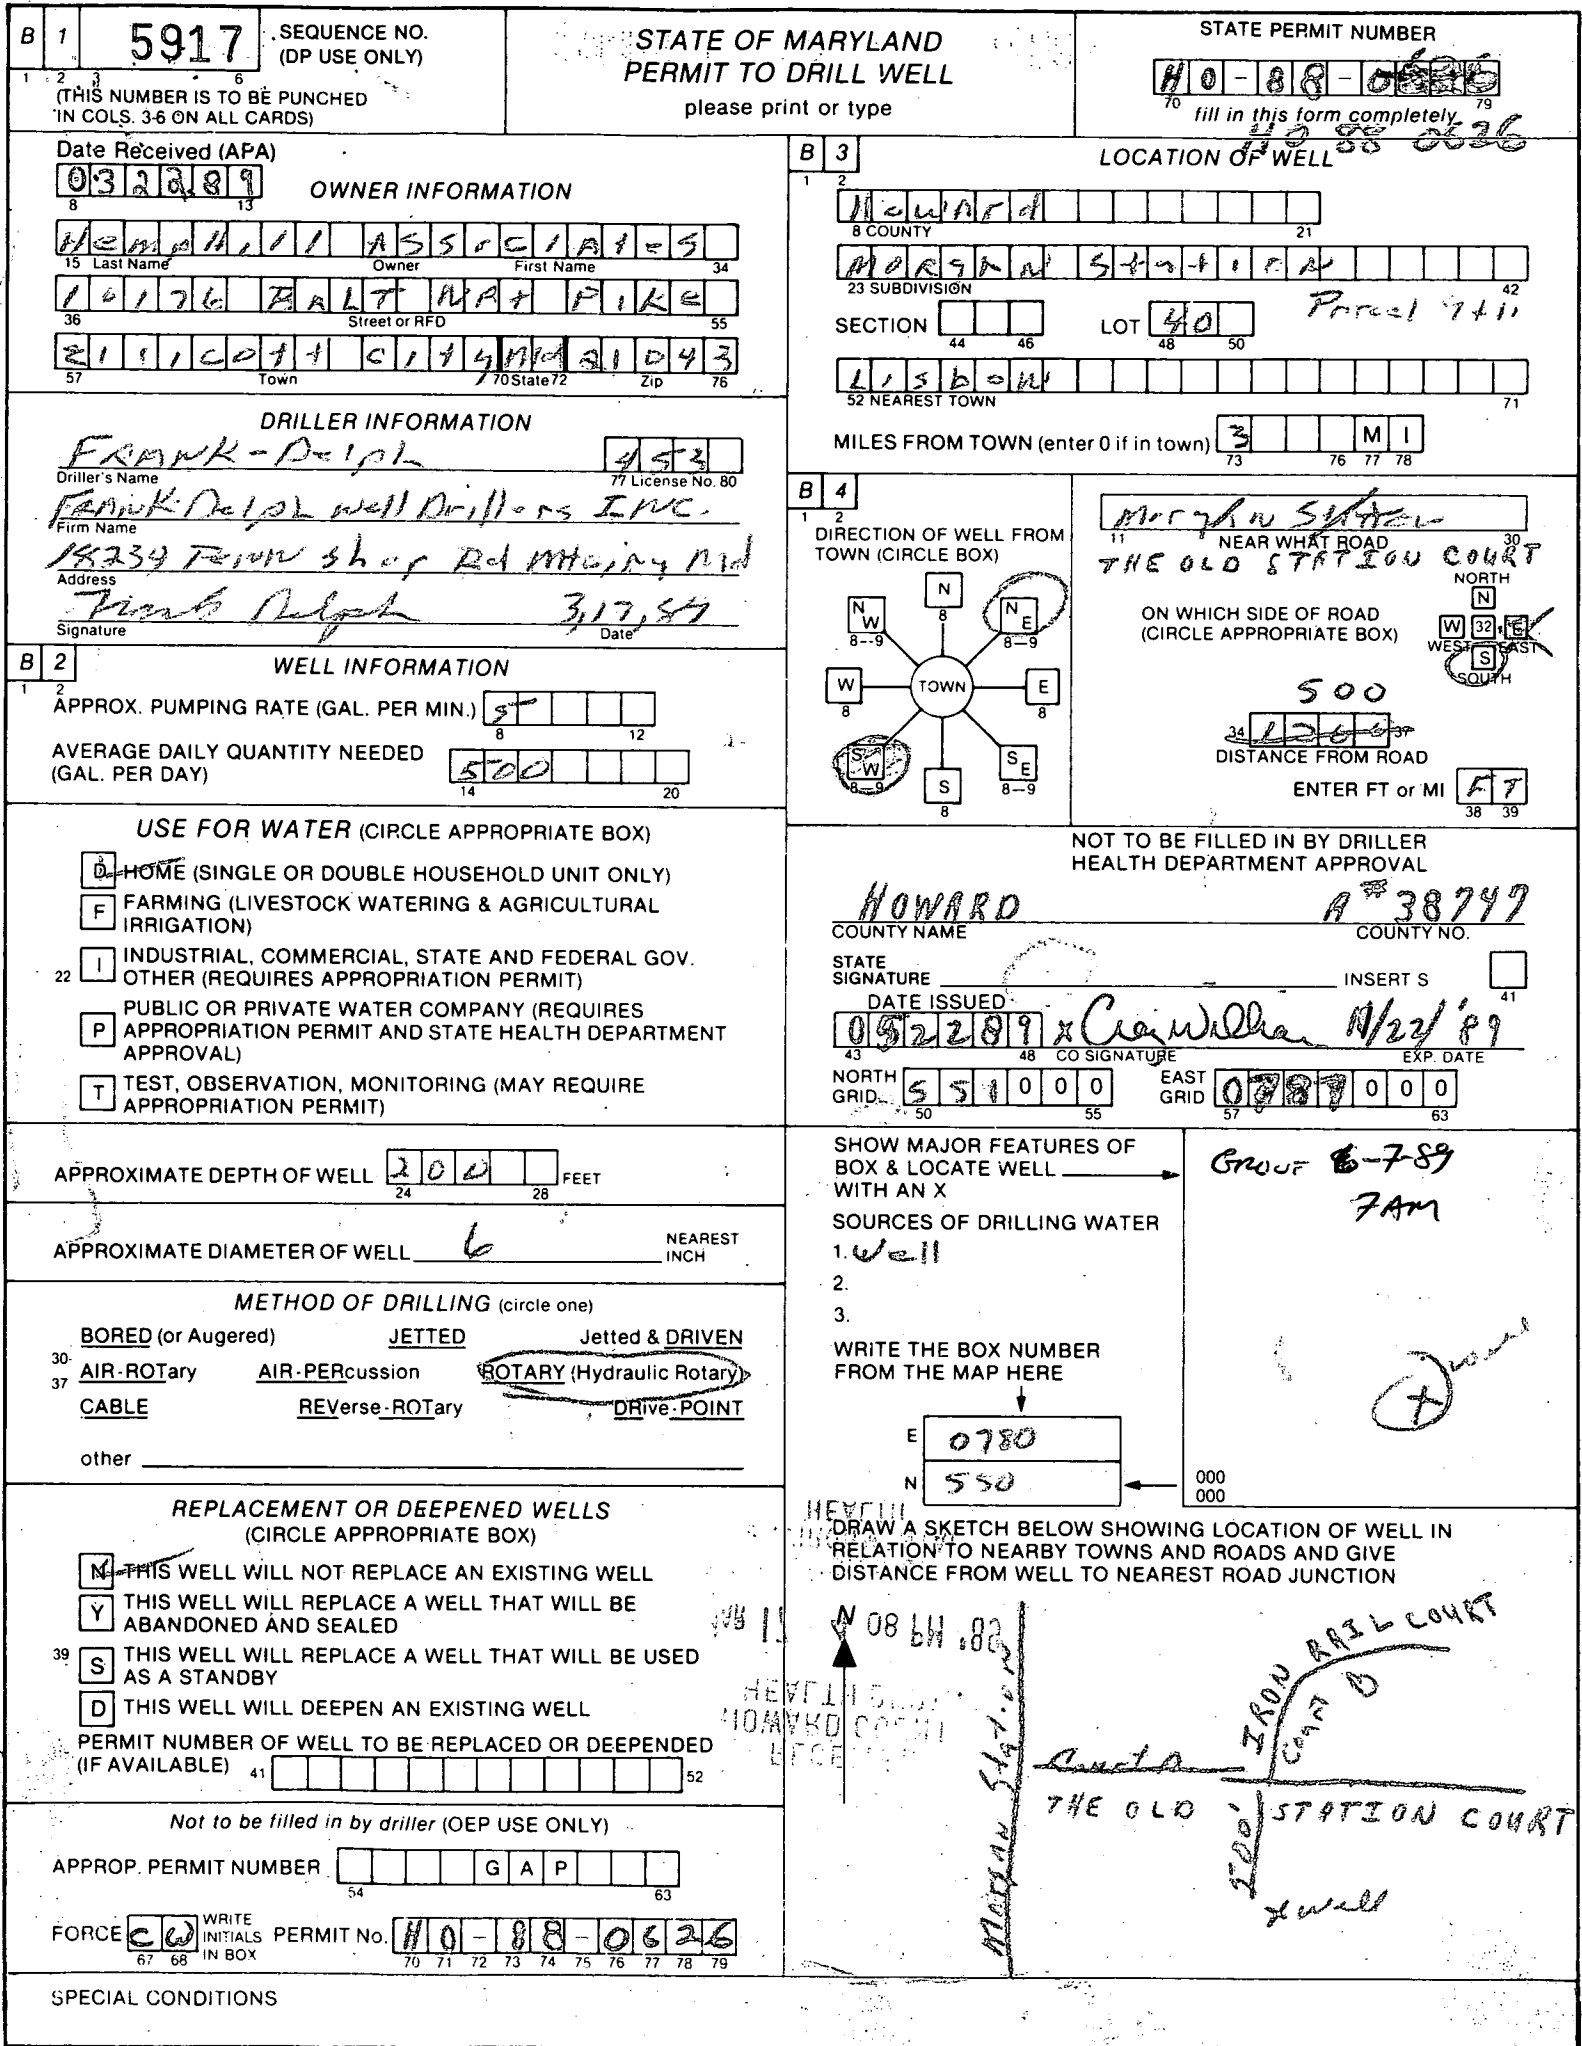 B 1 5917 SEQUENCE NO.
(DP USE ONLY)
1 2 3 6
(THIS NUMBER IS TO BE PUNCHED
IN COLS. 3-6 ON ALL CARDS)
STATE OF MARYLAND
PERMIT TO DRILL WELL
please print or type
STATE PERMIT NUMBER
HO-88-0
70 79
fill in this form completely
HO 88 0626
Date Received (APA)
032289
8 13
OWNER INFORMATION
Hemphill Associates
15 Last Name Owner First Name 34
10176 BALT NAt PIKE
36 Street or RFD 55
Ellicott City Md 21043
57 Town 70 State 72 Zip 76
DRILLER INFORMATION
FRANK-Delph 453
Driller's Name 77 License No. 80
FRANK Delph Well Drillers INC.
Firm Name
Shop Rd Mt airy Md
Address
Frank Delph 3,17,89
Signature Date
B 2 WELL INFORMATION
1 2
APPROX. PUMPING RATE (GAL. PER MIN.) 5
8 12
AVERAGE DAILY QUANTITY NEEDED
(GAL. PER DAY) 500
14 20
USE FOR WATER (CIRCLE APPROPRIATE BOX)
D HOME (SINGLE OR DOUBLE HOUSEHOLD UNIT ONLY)
F FARMING (LIVESTOCK WATERING & AGRICULTURAL
IRRIGATION)
22 I INDUSTRIAL, COMMERCIAL, STATE AND FEDERAL GOV.
OTHER (REQUIRES APPROPRIATION PERMIT)
P PUBLIC OR PRIVATE WATER COMPANY (REQUIRES
APPROPRIATION PERMIT AND STATE HEALTH DEPARTMENT
APPROVAL)
T TEST, OBSERVATION, MONITORING (MAY REQUIRE
APPROPRIATION PERMIT)
APPROXIMATE DEPTH OF WELL 200 FEET
24 28
APPROXIMATE DIAMETER OF WELL 6 NEAREST
INCH
METHOD OF DRILLING (circle one)
BORED (or Augered) JETTED Jetted & DRIVEN
30- AIR-ROTary AIR-PERcussion ROTARY (Hydraulic Rotary)
37
CABLE REVerse-ROTary DRive-POINT
other
REPLACEMENT OR DEEPENED WELLS
(CIRCLE APPROPRIATE BOX)
N THIS WELL WILL NOT REPLACE AN EXISTING WELL
Y THIS WELL WILL REPLACE A WELL THAT WILL BE
ABANDONED AND SEALED
39 S THIS WELL WILL REPLACE A WELL THAT WILL BE USED
AS A STANDBY
D THIS WELL WILL DEEPEN AN EXISTING WELL
PERMIT NUMBER OF WELL TO BE REPLACED OR DEEPENDED
(IF AVAILABLE) 41 52
Not to be filled in by driller (OEP USE ONLY)
APPROP. PERMIT NUMBER G A P
54 63
FORCE CW WRITE
INITIALS
IN BOX PERMIT No. HO-88-0626
67 68 70 71 72 73 74 75 76 77 78 79
SPECIAL CONDITIONS
B 3 LOCATION OF WELL
1 2
Howard
8 COUNTY 21
MORGAN Station
23 SUBDIVISION 42
SECTION LOT 40 Parcel
44 46 48 50
Lisbon
52 NEAREST TOWN 71
MILES FROM TOWN (enter 0 if in town) 3 M I
73 76 77 78
B 4
1 2
DIRECTION OF WELL FROM
TOWN (CIRCLE BOX)
N 8
NW 8--9
NE 8--9
W 8
TOWN
E 8
SW 8--9
S 8
SE 8--9
Morgan Station
11 NEAR WHAT ROAD 30
THE OLD STATION COURT
ON WHICH SIDE OF ROAD
(CIRCLE APPROPRIATE BOX)
NORTH
N
W 32 E
WEST EAST
S
SOUTH
500
34 39
DISTANCE FROM ROAD
ENTER FT or MI FT
38 39
NOT TO BE FILLED IN BY DRILLER
HEALTH DEPARTMENT APPROVAL
HOWARD A # 38747
COUNTY NAME COUNTY NO.
STATE
SIGNATURE INSERT S
41
DATE ISSUED
052289 11/22/'89
43 48 CO SIGNATURE EXP. DATE
NORTH
GRID 551000
50 55
EAST
GRID 0787000
57 63
SHOW MAJOR FEATURES OF
BOX & LOCATE WELL
WITH AN X
SOURCES OF DRILLING WATER
1. Well
2.
3.
WRITE THE BOX NUMBER
FROM THE MAP HERE
E 0780
N 550
GROUT 6-7-89
7AM
X
000
000
DRAW A SKETCH BELOW SHOWING LOCATION OF WELL IN
RELATION TO NEARBY TOWNS AND ROADS AND GIVE
DISTANCE FROM WELL TO NEAREST ROAD JUNCTION
N
Morgan Station
IRON RAIL COURT
Court B
THE OLD STATION COURT
500'
x well